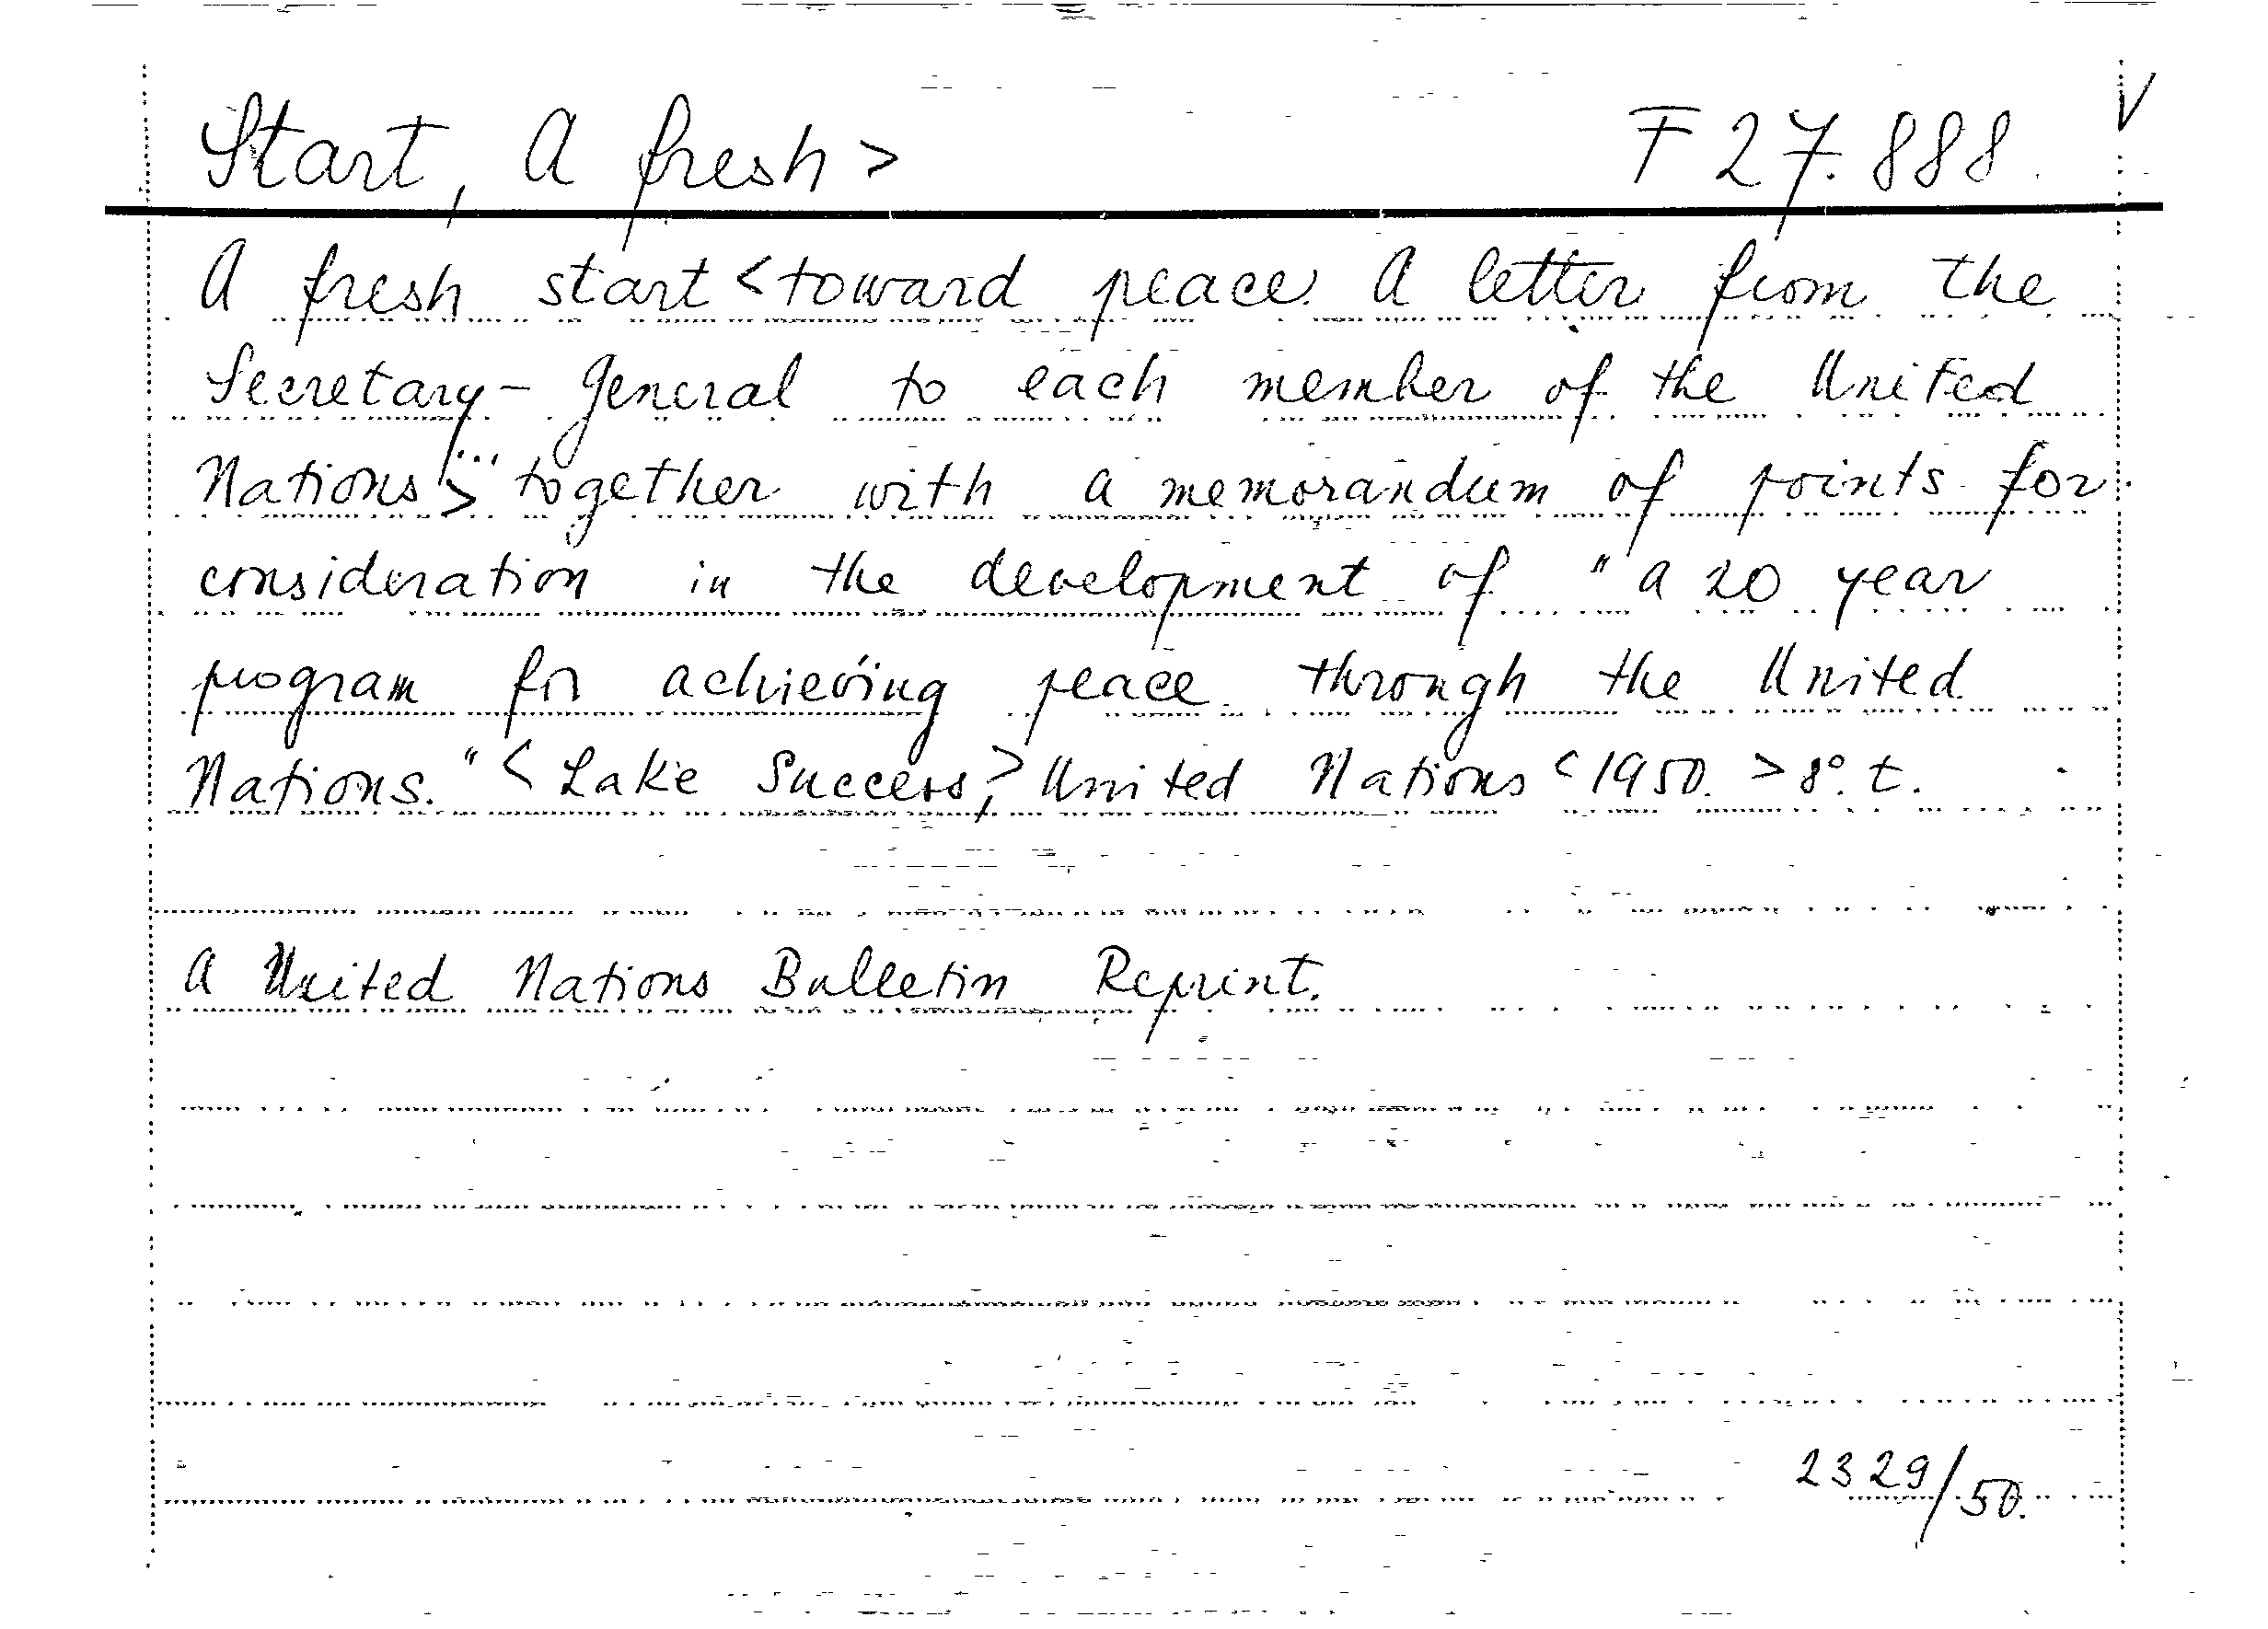 Start, A fresh > F 27.888. V
A fresh start < toward peace. A letter from the
Secretary-General to each member of the United
Nations > ... together with a memorandum of points for
consideration in the development of "a 20 year
program for achieving peace through the United
Nations." < Lake Success, > United Nations < 1950. > 8°. t.
A United Nations Bulletin Reprint.
2329/50.